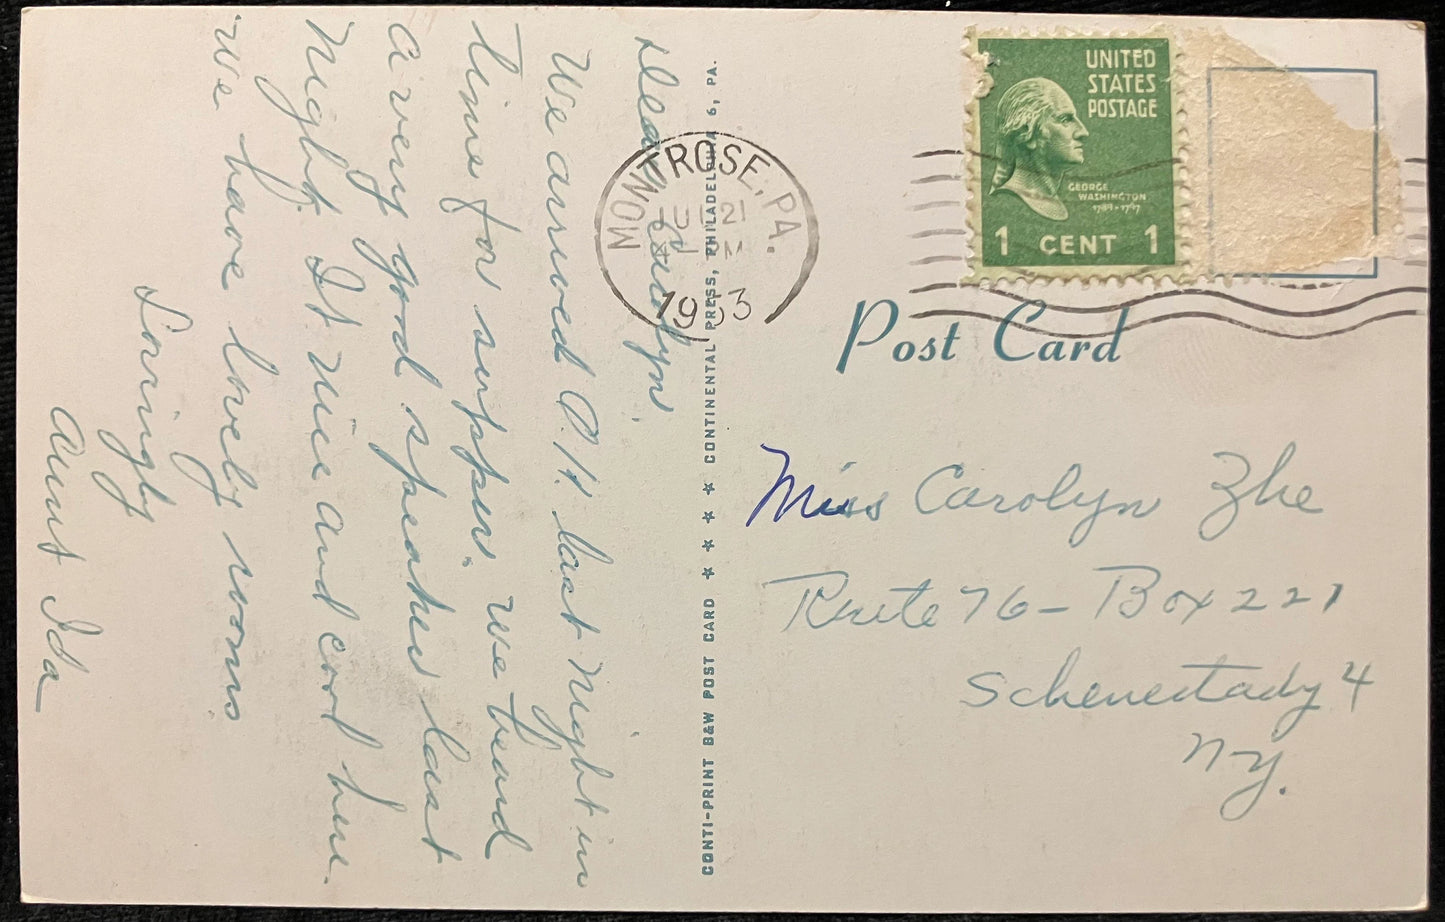 Dear Carolyn.
We arrived O.K. last night in
time for supper. We heard
a very good speaker last
night. It nice and cool here.
We have lovely rooms
Lovingly
Aunt Ida
CONTI-PRINT B&W POST CARD ★ ★ ★ CONTINENTAL PRESS, PHILADELPHIA 6, PA.
MONTROSE, PA.
JUL 21
1 PM
1953
UNITED
STATES
POSTAGE
GEORGE
WASHINGTON
1789-1797
1 CENT 1
Post Card
Miss Carolyn Zhe
Route 76 - Box 221
Schenectady 4
N.Y.